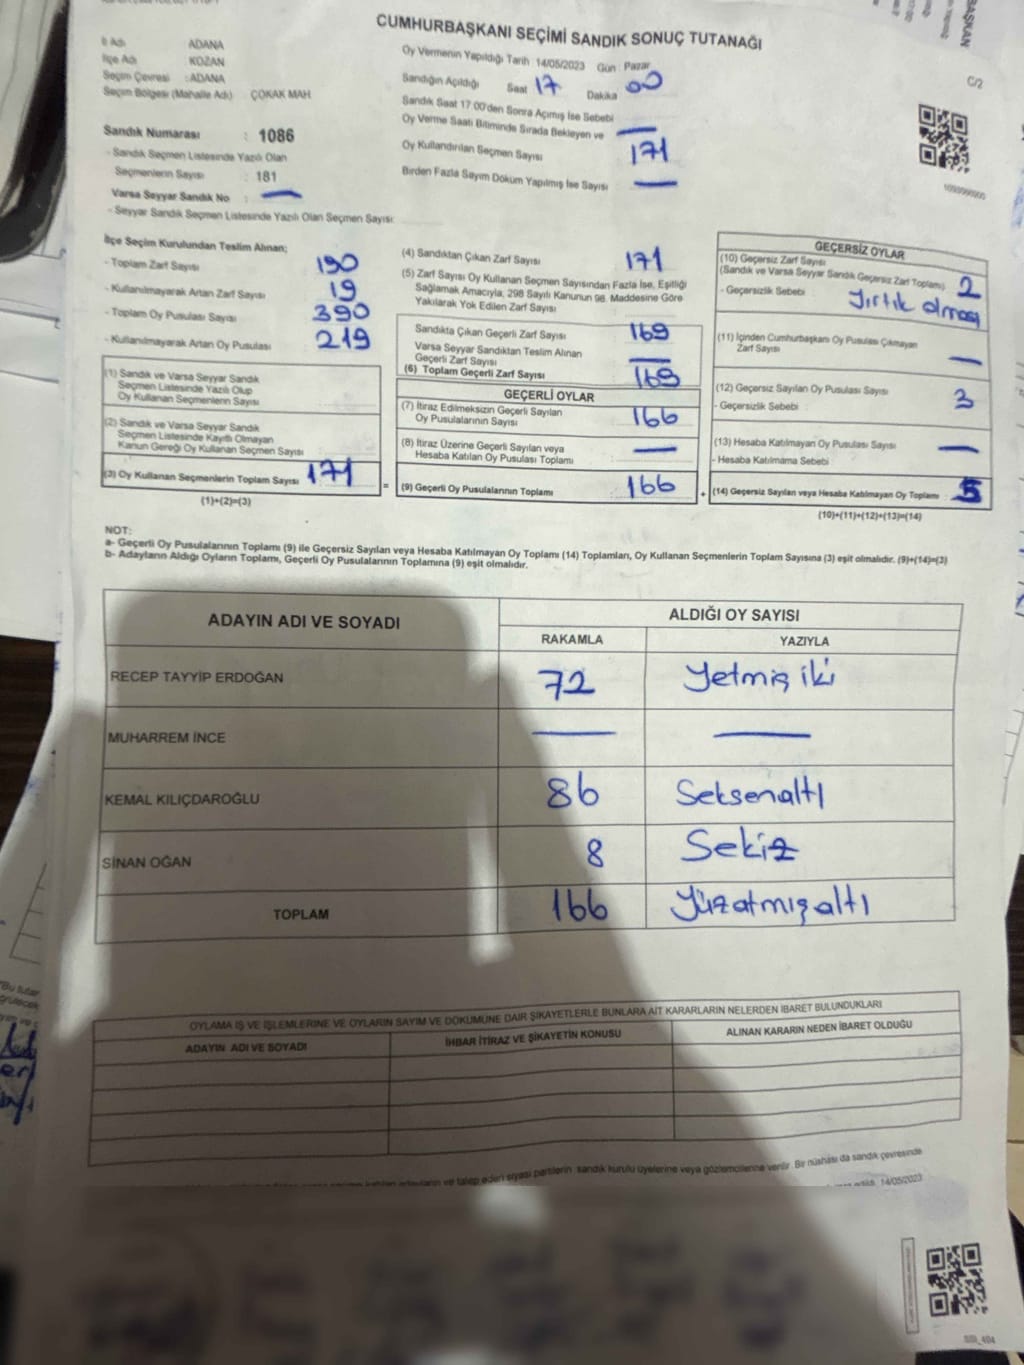 CUMHURBAŞKANI SEÇİMİ SANDIK SONUÇ TUTANAĞI
BAŞKAN
C/2
İl Adı ADANA
İlçe Adı : KOZAN
Seçim Çevresi : ADANA
Seçim Bölgesi (Mahalle Adı) ÇOKAK MAH
Sandık Numarası : 1086
- Sandık Seçmen Listesinde Yazılı Olan
Seçmenlerin Sayısı : 181
Varsa Seyyar Sandık No : —
- Seyyar Sandık Seçmen Listesinde Yazılı Olan Seçmen Sayısı:
Oy Vermenin Yapıldığı Tarih 14/05/2023 Gün : Pazar
Sandığın Açıldığı Saat 17 Dakika 00
Sandık Saat 17:00'den Sonra Açmış İse Sebebi
Oy Verme Saati Bitiminde Sırada Bekleyen ve —
Oy Kullandırılan Seçmen Sayısı 171
Birden Fazla Sayım Döküm Yapılmış İse Sayısı —
İlçe Seçim Kurulundan Teslim Alınan;
- Toplam Zarf Sayısı 190
- Kullanılmayarak Artan Zarf Sayısı 19
- Toplam Oy Pusulası Sayısı 390
- Kullanılmayarak Artan Oy Pusulası 219
(1) Sandık ve Varsa Seyyar Sandık
Seçmen Listesinde Yazılı Olup
Oy Kullanan Seçmenlerin Sayısı
(2) Sandık ve Varsa Seyyar Sandık
Seçmen Listesinde Kayıtlı Olmayan
Kanun Gereği Oy Kullanan Seçmen Sayısı
(3) Oy Kullanan Seçmenlerin Toplam Sayısı 171
(1)+(2)=(3)
(4) Sandıktan Çıkan Zarf Sayısı 171
(5) Zarf Sayısı Oy Kullanan Seçmen Sayısından Fazla İse, Eşitliği
Sağlamak Amacıyla, 298 Sayılı Kanunun 98. Maddesine Göre
Yakılarak Yok Edilen Zarf Sayısı
Sandıkta Çıkan Geçerli Zarf Sayısı 169
Varsa Seyyar Sandıktan Teslim Alınan
Geçerli Zarf Sayısı —
(6) Toplam Geçerli Zarf Sayısı 169
GEÇERLİ OYLAR
(7) İtiraz Edilmeksizin Geçerli Sayılan
Oy Pusulalarının Sayısı 166
(8) İtiraz Üzerine Geçerli Sayılan veya
Hesaba Katılan Oy Pusulası Toplamı —
= (9) Geçerli Oy Pusulalarının Toplamı 166
GEÇERSİZ OYLAR
(10) Geçersiz Zarf Sayısı
(Sandık ve Varsa Seyyar Sandık Geçersiz Zarf Toplamı) 2
- Geçersizlik Sebebi : Yırtık olması
(11) İçinden Cumhurbaşkanı Oy Pusulası Çıkmayan
Zarf Sayısı —
(12) Geçersiz Sayılan Oy Pusulası Sayısı 3
- Geçersizlik Sebebi :
(13) Hesaba Katılmayan Oy Pusulası Sayısı —
- Hesaba Katılmama Sebebi :
+ (14) Geçersiz Sayılan veya Hesaba Katılmayan Oy Toplamı 5
(10)+(11)+(12)+(13)=(14)
NOT:
a- Geçerli Oy Pusulalarının Toplamı (9) ile Geçersiz Sayılan veya Hesaba Katılmayan Oy Toplamı (14) Toplamları, Oy Kullanan Seçmenlerin Toplam Sayısına (3) eşit olmalıdır. (9)+(14)=(3)
b- Adayların Aldığı Oyların Toplamı, Geçerli Oy Pusulalarının Toplamına (9) eşit olmalıdır.
ADAYIN ADI VE SOYADI ALDIĞI OY SAYISI
RAKAMLA YAZIYLA
RECEP TAYYİP ERDOĞAN 72 Yetmiş iki
MUHARREM İNCE — —
KEMAL KILIÇDAROĞLU 86 Seksenaltı
SİNAN OĞAN 8 Sekiz
TOPLAM 166 Yüzatmışaltı
OYLAMA İŞ VE İŞLEMLERİNE VE OYLARIN SAYIM VE DÖKÜMÜNE DAİR ŞİKAYETLERLE BUNLARA AİT KARARLARIN NELERDEN İBARET BULUNDUKLARI
ADAYIN ADI VE SOYADI İHBAR İTİRAZ VE ŞİKAYETİN KONUSU ALINAN KARARIN NEDEN İBARET OLDUĞU
siyasi partilerin sandık kurulu üyelerine veya gözlemcilerine verilir. Bir nüshası da sandık çevresinde
14/05/2023